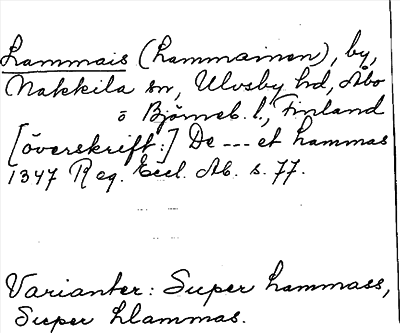 Lammais (Lammainen), by,
Nakkila sn, Ulvsby hd, Åbo
o Björneb. l., Finland
[överskrift:] De --- et Lammas
1347 Reg. Eccl. Ab. s. 77.
Varianter: Super Lammass,
Super Hlammas.